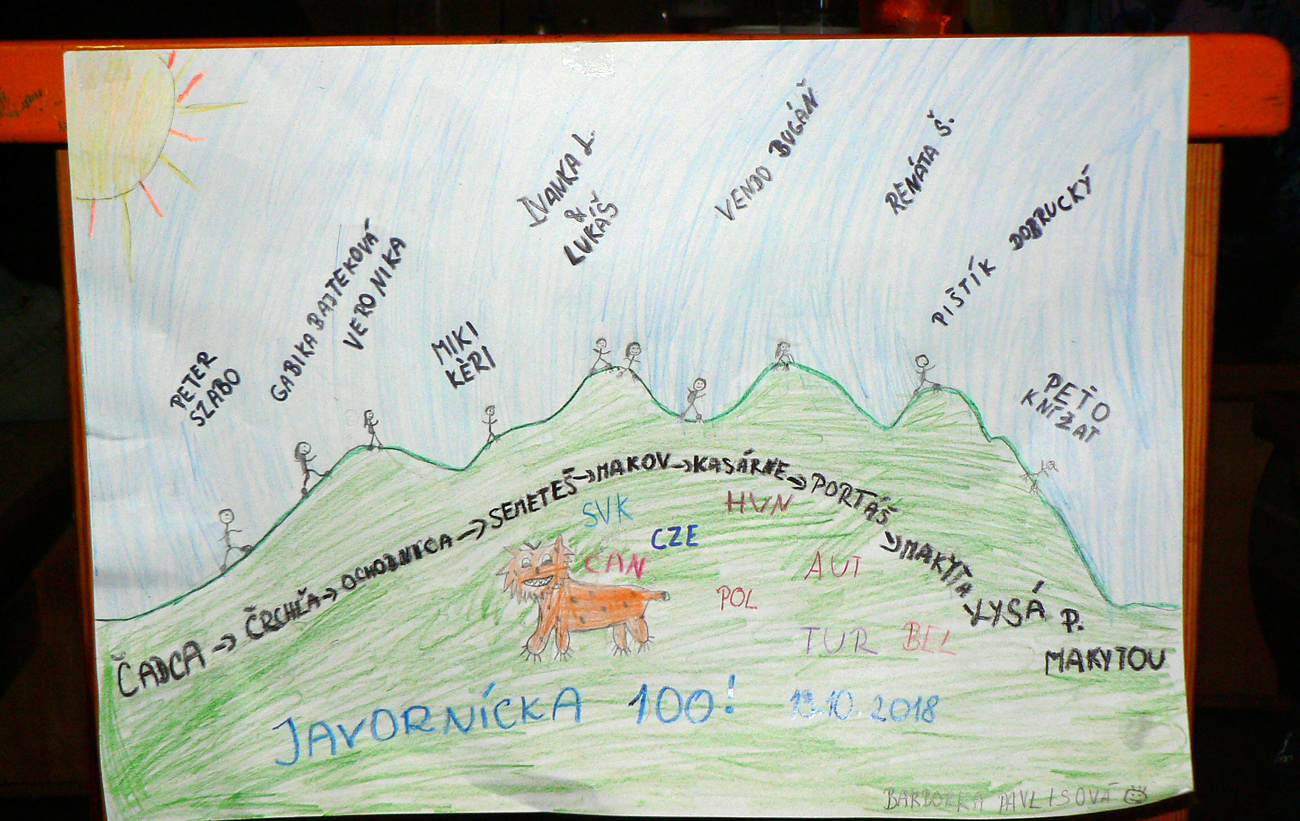 PETER
SZABO
GABIKA BAJTEKOVÁ
VERONIKA
MIKI
KÉRI
IVANKA L.
&
LUKÁŠ
VENDO BUGÁŇ
RENÁTA Š.
PIŠTÍK DOBRUCKÝ
PEŤO
KNÍŽAT
ČADCA → ČRCHĽA → OCHODNICA → SEMETEŠ → MAKOV → KASÁRNE → PORTÁŠ → MAKYTA → LYSÁ P.
MAKYTOU
SVK
HUN
CZE
CAN
AUT
POL
TUR
BEL
JAVORNÍCKA 100! 13.10.2018
BARBORKA PAVLISOVÁ